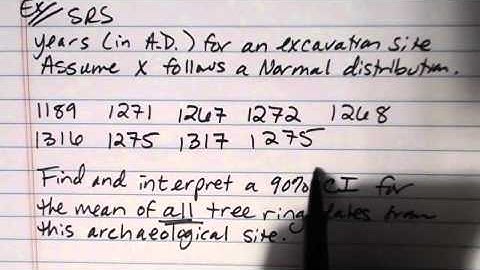 Ex// SRS
years (in A.D.) for an excavation site
Assume X follows a Normal distribution.
1189 1271 1267 1272 1268
1316 1275 1317 1275
Find and interpret a 90% CI for
the mean of all tree ring dates from
this archaeological site.